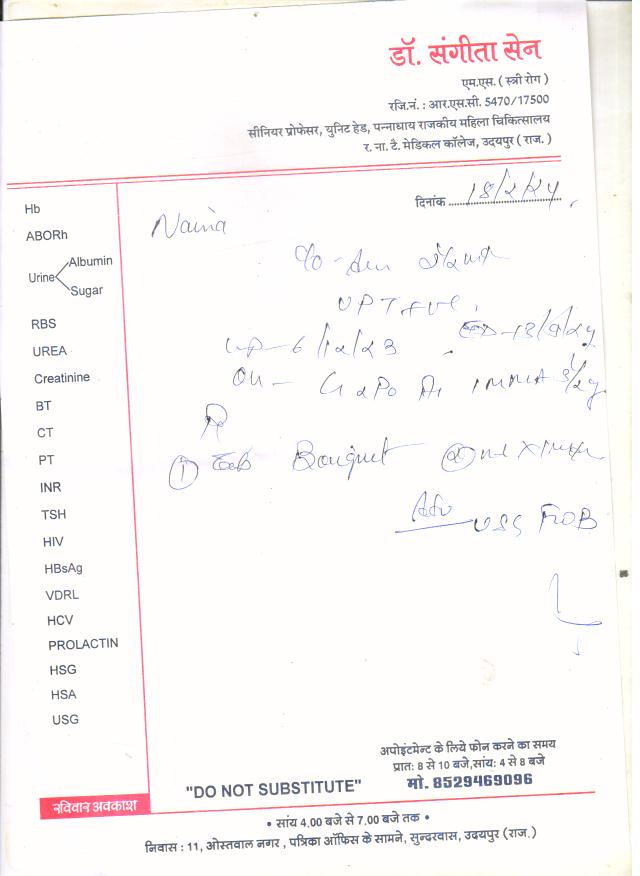 डॉ. संगीता सेन
एम.एस. ( स्त्री रोग )
रजि.नं. : आर.एस.सी. 5470/17500
सीनियर प्रोफेसर, युनिट हेड, पन्नाधाय राजकीय महिला चिकित्सालय
र. ना. टै. मेडिकल कॉलेज, उदयपुर ( राज. )
दिनांक 18/2/24
Hb
ABORh
Urine Albumin
Sugar
RBS
UREA
Creatinine
BT
CT
PT
INR
TSH
HIV
HBsAg
VDRL
HCV
PROLACTIN
HSG
HSA
USG
Naina
UPT +ve
6/12/23
13/9/24
G2P0 A1
① Tab Bouquet
Adv
USG FOB
अपोइंटमेन्ट के लिये फोन करने का समय
प्रात: 8 से 10 बजे,सांय: 4 से 8 बजे
मो. 8529469096
"DO NOT SUBSTITUTE"
रविवार अवकाश
• सांय 4.00 बजे से 7.00 बजे तक •
निवास : 11, ओस्तवाल नगर , पत्रिका ऑफिस के सामने, सुन्दरवास, उदयपुर (राज.)